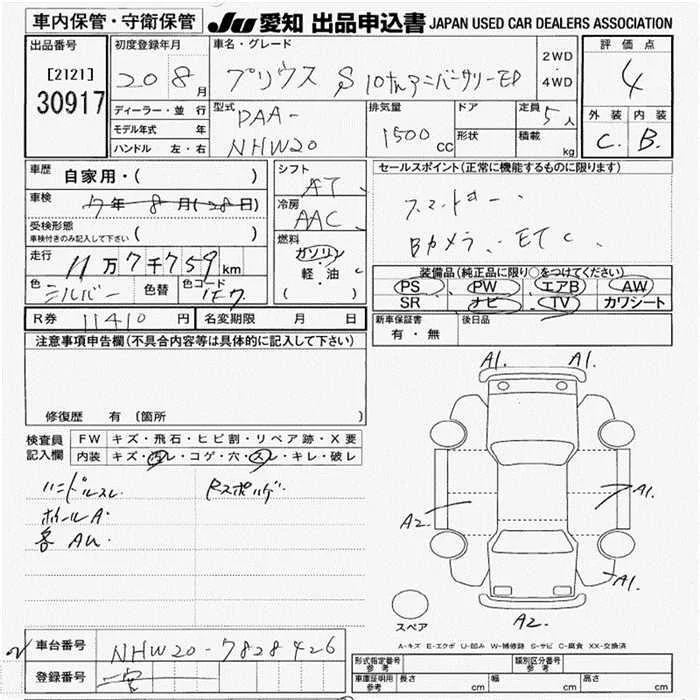 車内保管・守衛保管
JU 愛知 出品申込書 JAPAN USED CAR DEALERS ASSOCIATION
出品番号
[2121]
30917
初度登録年月
20 8月
車名・グレード
プリウス S 10thアニバーサリーED
2WD
・
4WD
評価点
4
外装 内装
C. B.
ディーラー・並行
モデル年式 年
ハンドル 左・右
型式
DAA-
NHW20
排気量
1500 cc
ドア
形状
定員 5人
積載 kg
車歴
自家用・( )
車検
7年8月(28日)
受検形態
車検付きのみ記入して下さい ( )
走行
11万7千759km
色 シルバー 色替 色コード 1F7
シフト
AT
冷房
AAC
燃料
ガソリン
・
軽・油
( )
セールスポイント(正常に機能するものに限ります)
スマートキー
Bカメラ ETC
装備品(純正品に限り○をつけてください)
PS PW エアB AW
SR ナビ TV カワシート
R券 11410円 名変期限 月 日
新車保証書
有・無
後日品
注意事項申告欄(不具合内容等は具体的に記入して下さい)
修復歴 有(箇所 )
検査員
記入欄
FW キズ・飛石・ヒビ割・リペア跡・X要
内装 キズ・汚レ・コゲ・穴・スレ・キレ・破レ
ハンドルスレ
ホイールA
各AU
A1. A1.
A2
A1.
A1.
A2.
スペア
A-キズ E-エクボ U-凹み W-補修跡 S-サビ C-腐食 XX-交換済
車台番号 NHW20-7828426
登録番号
型式指定番号
参考
類別区分番号
参考
車庫証明用
参考
長さ cm 幅 cm 高さ cm